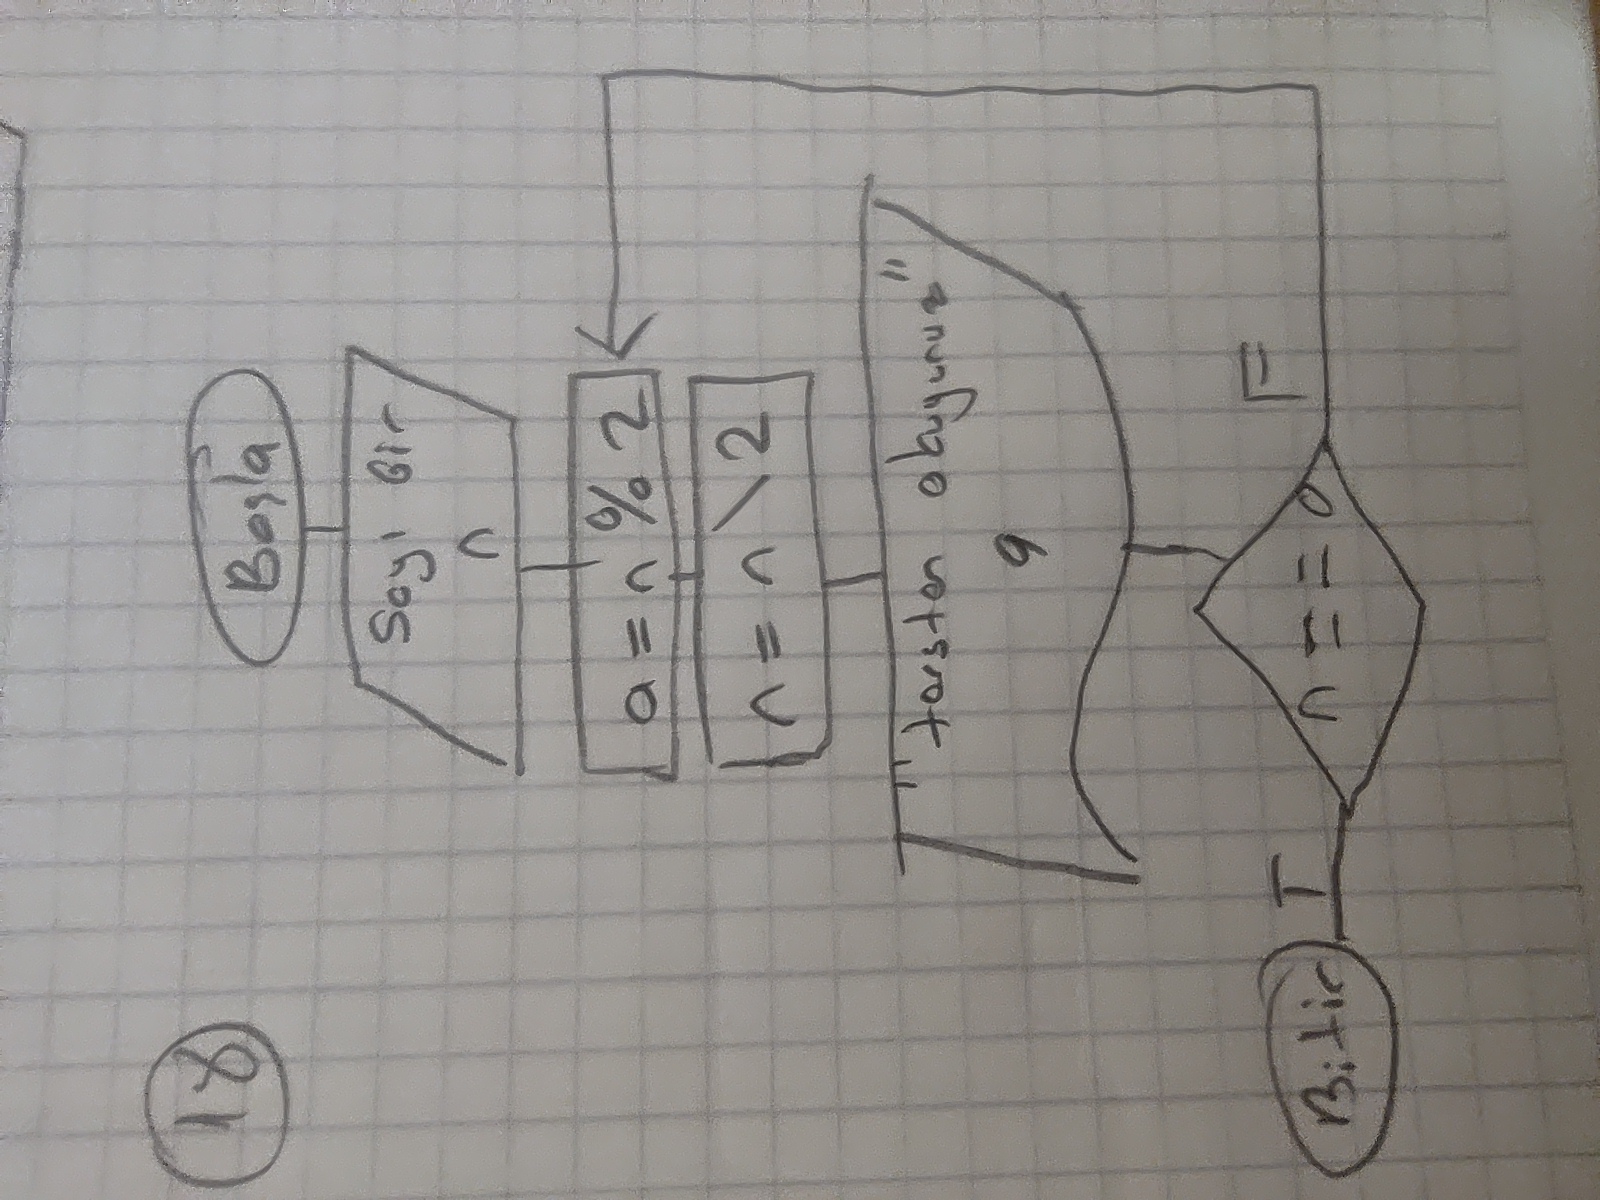 18
Başla
Sayı Gir
n
a = n % 2
n = n \ 2
"tersten okuyunuz"
a
n == 0
T
F
Bitir